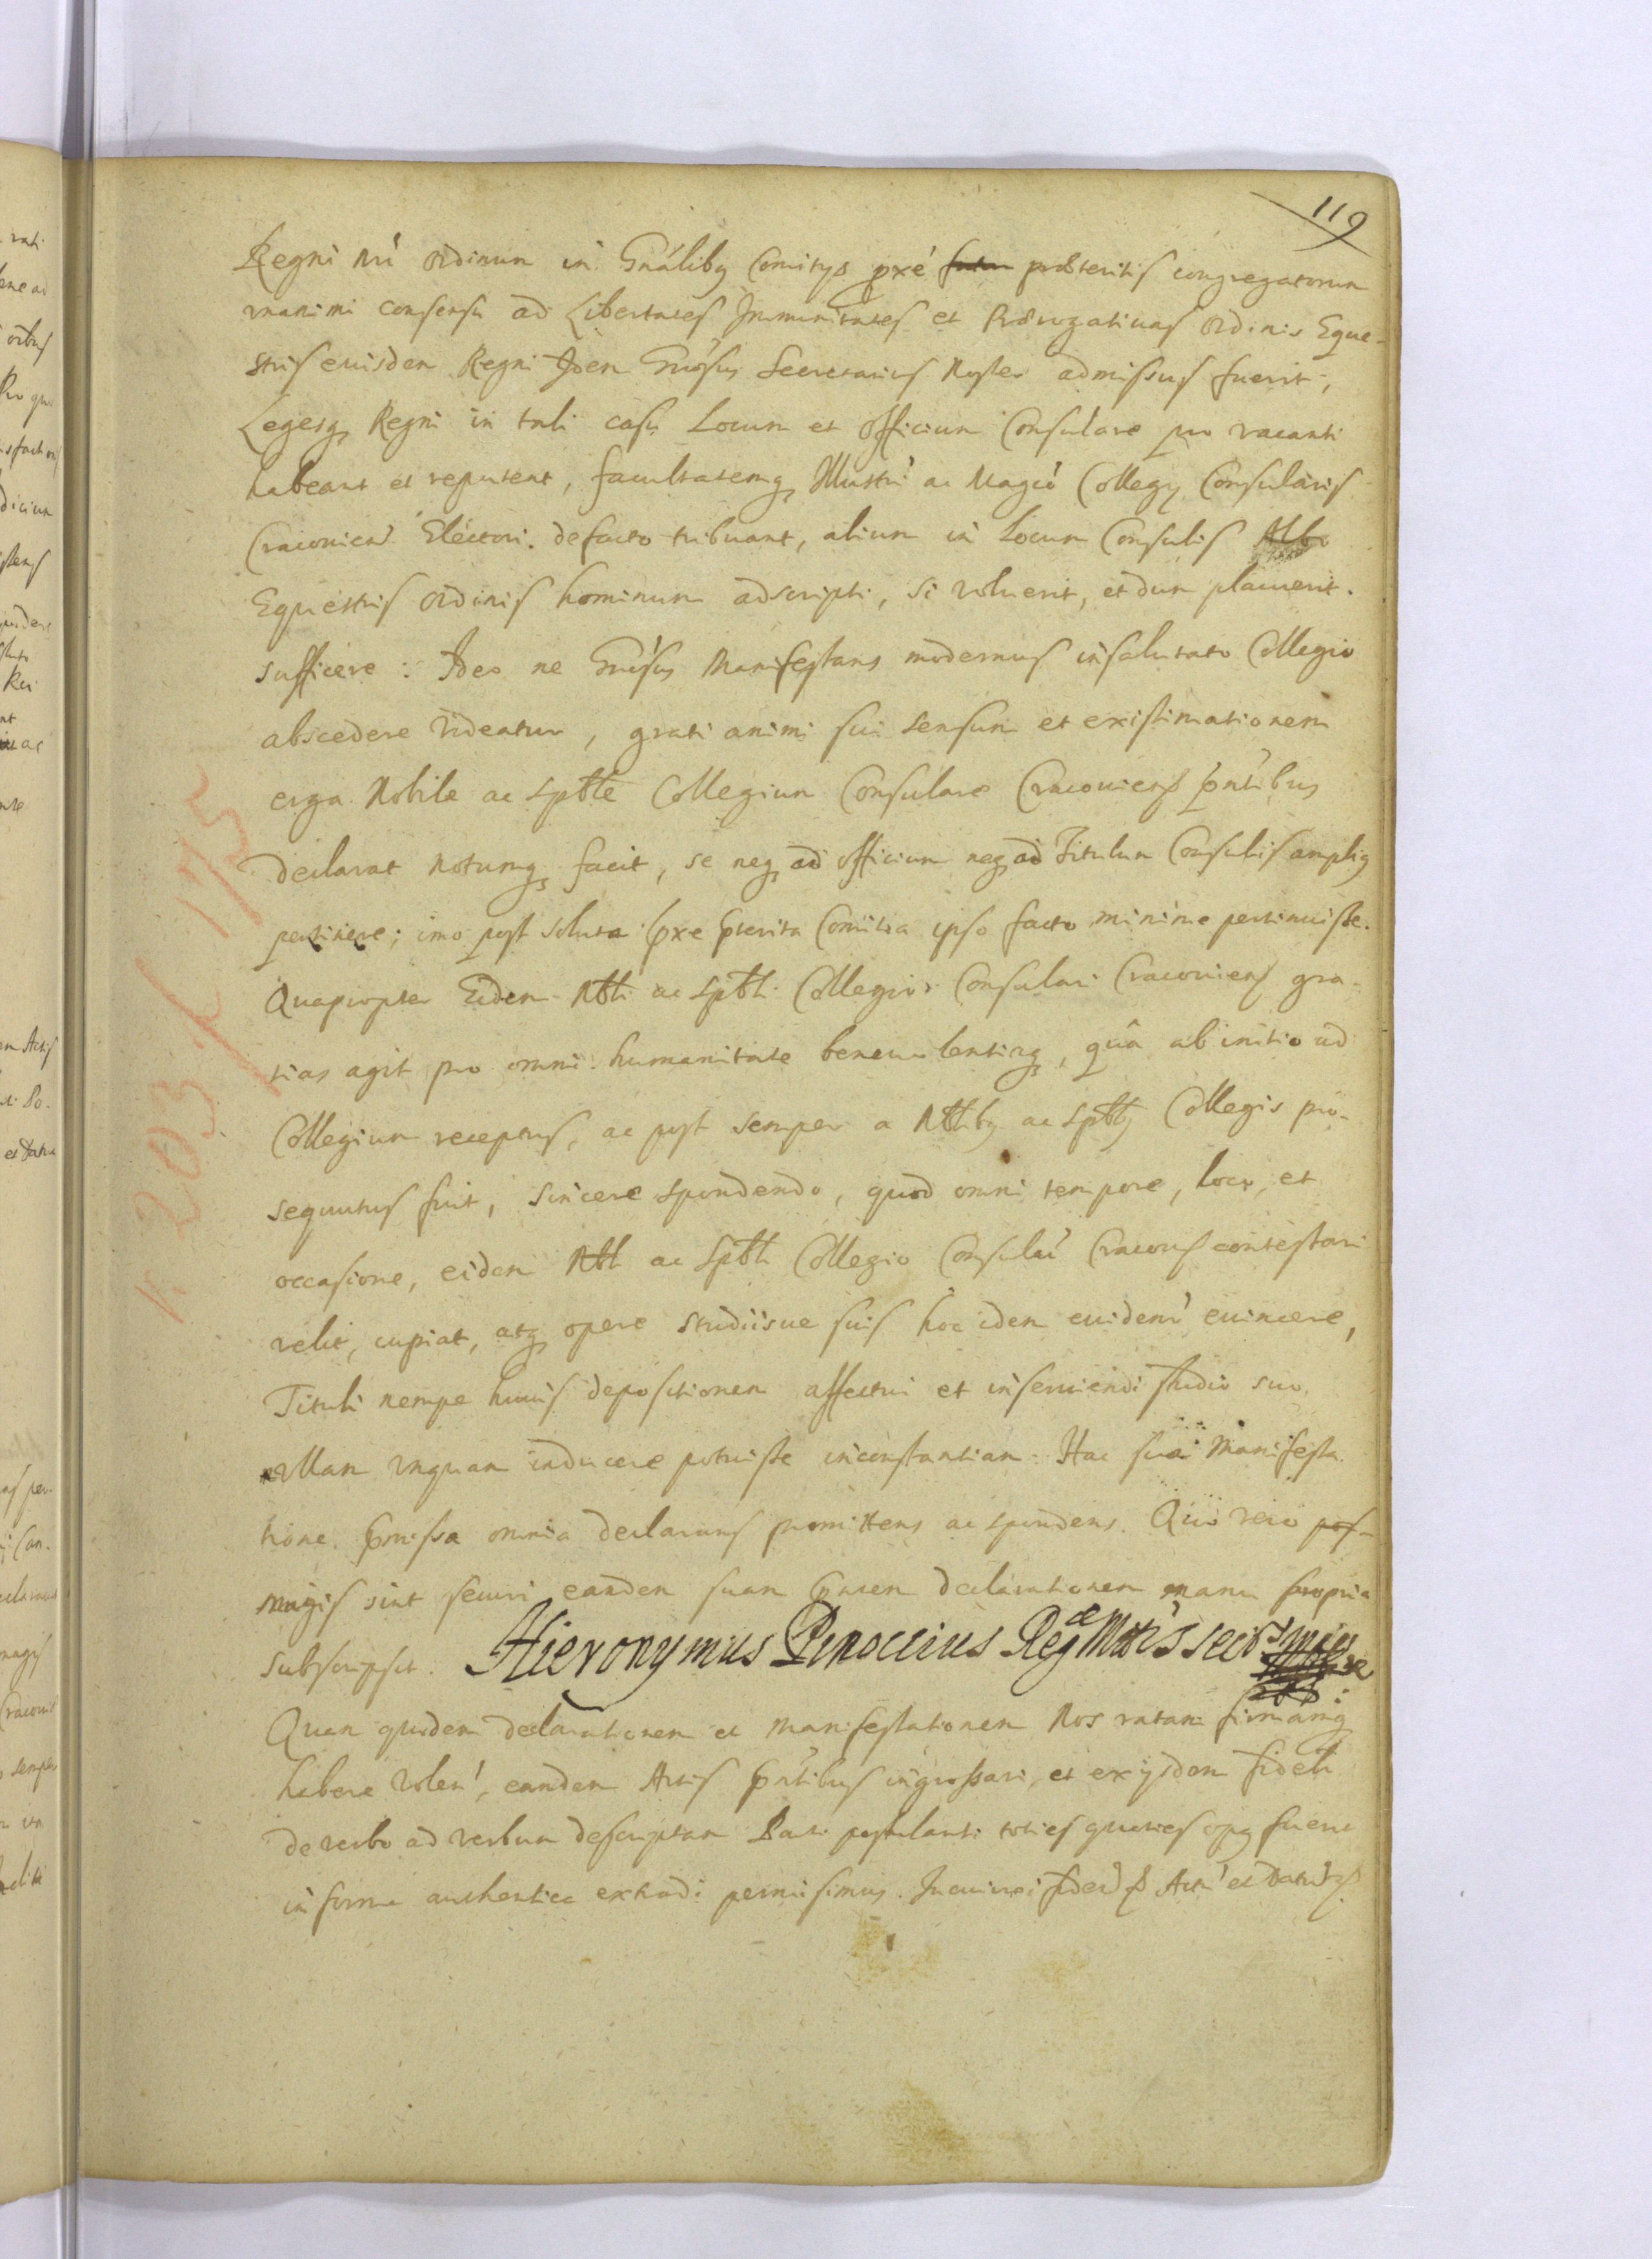 119
Regni Nri Ordinum in Gnalibq Comitys pxe futu præteritis congregatorum
vnanimi consensu ad Libertates Immunitates et Prærogatiuas Ordinis Eque-
stris eiusdem Regni Idem Gnosus Secretarius Noster admissus fuerit;
Legesq Regni in tali casu Locum et Officium Consulare pro vacanti
habeant et reputent, facultatemq Illustri ac Magco Collegy Consularis
Cracouien Electori defacto tribuant, alium in Locum Consulis Albo
Equestris Ordinis hominum adscripti, si voluerit, et dum placuerit
sufficere: Ideo ne Gnosus Manifestans modernus insalutato Collegio
abscedere videatur, grati animi sui sensum et existimationem
erga Nobile ac Spble Collegium Consulare Cracouiens pntibus
declarat notumq facit, se neq ad officium neq ad Titulum Consulis ampliq
pertinere; imo post soluta pxe pterita Comitia ipso facto minime pertinuisse.
Quapropter Eidem Nbli ac Spbli Collegio Consulari Cracouiens gra-
tias agit pro omni humanitate beneuolentiaq, quâ ab initio ad
Collegium receptus, ac post semper a Nblibq ac Spblq Collegis pro-
sequutus fuit, sincere spondendo, quod omni tempore, loco, et
occasione, eidem Nbli ac Spbli Collegio Consulari Cracouis contestari
velit, cupiat, atq opere studiisue suis hoc idem euident euincere,
Tituli nempe huius depositionem affectui et inseruiendi studio suo
vllam vnquam inducere potuisse inconstantiam. Hac sua Manifesta
tione pmissa omnia declarans promittens ac spondens. Quo vero pos-
magis sint securi eandem suam pntem declarationem manu propria
subscripsit. Hieronymus Pinoccius Regæ Mtis Secrs
Quam quidem declarationem et manifestationem Nos ratam firmamq
habere volen, eandem Actis pntibus ingrossari, et ex ijsdem fideli
de verbo ad verbum descriptam Parti postulanti toties quoties opq fuerit
in forma authentica extradi permisimus. In cuius rei fidem Actu et Datu
k. 203 k 175